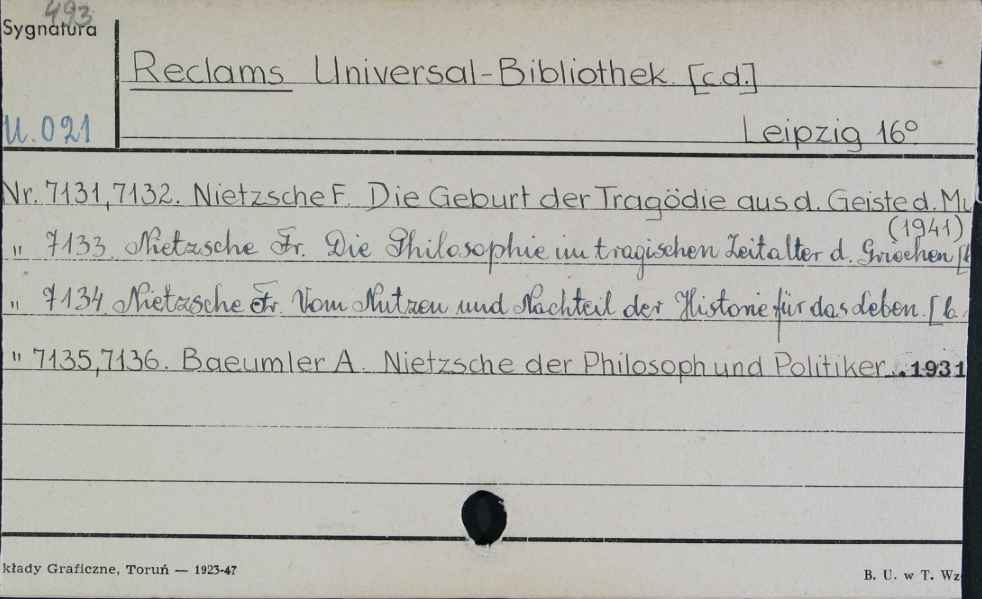 493
Sygnatura
Reclams Universal-Bibliothek. [c.d.]
U. 021
Leipzig 16°
Nr. 7131, 7132. Nietzsche F. Die Geburt der Tragödie aus d. Geiste d. Mu
(1941)
" 7133. Nietzsche Fr. Die Philosophie im tragischen Zeitalter d. Griechen [b
" 7134. Nietzsche Fr. Vom Nutzen und Nachteil der Historie für das Leben. [b.
" 7135, 7136. Baeumler A. Nietzsche der Philosoph und Politiker. 1931
kłady Graficzne, Toruń — 1923-47
B. U. w T. Wz